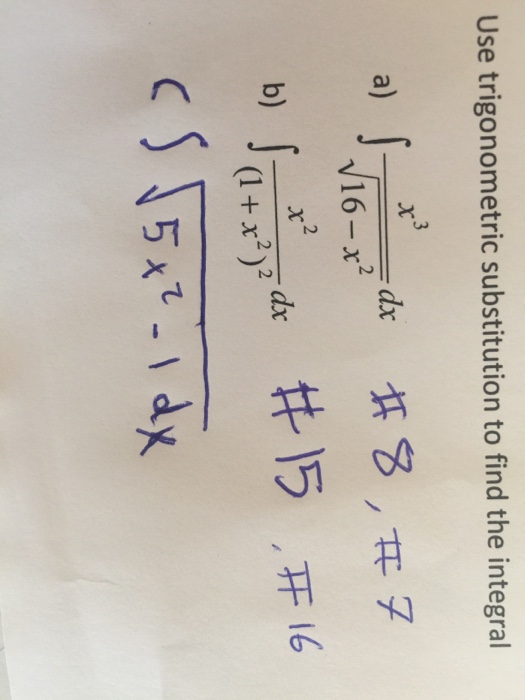 Use trigonometric substitution to find the integral
a) ∫ x³/√(16 − x²) dx #8, #7
b) ∫ x²/(1 + x²)² dx #15, #16
c ∫ √(5x² − 1) dx